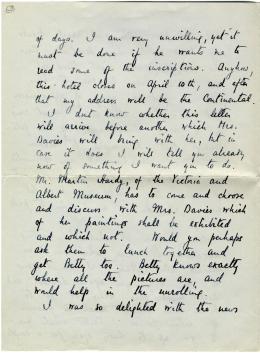 of days. I am very unwilling, yet it
must be done if he wants me to
read some of the inscriptions. Anyhow,
this hotel closes on April 10th, and after
that my address will be the Continental.
I don't know whether this letter
will arrive before another which Mrs.
Davies will bring with her, but in
case it does I will tell you already
now of something I want you to do.
Mr. Martin Hardy, of the Victoria and
Albert Museum, has to come and choose
and discuss with Mrs. Davies which
of her paintings shall be exhibited
and which not. Would you perhaps
ask them to lunch together and
get Betty too. Betty knows exactly
where all the pictures are, and
would help in the unrolling.
I was so delighted with the news